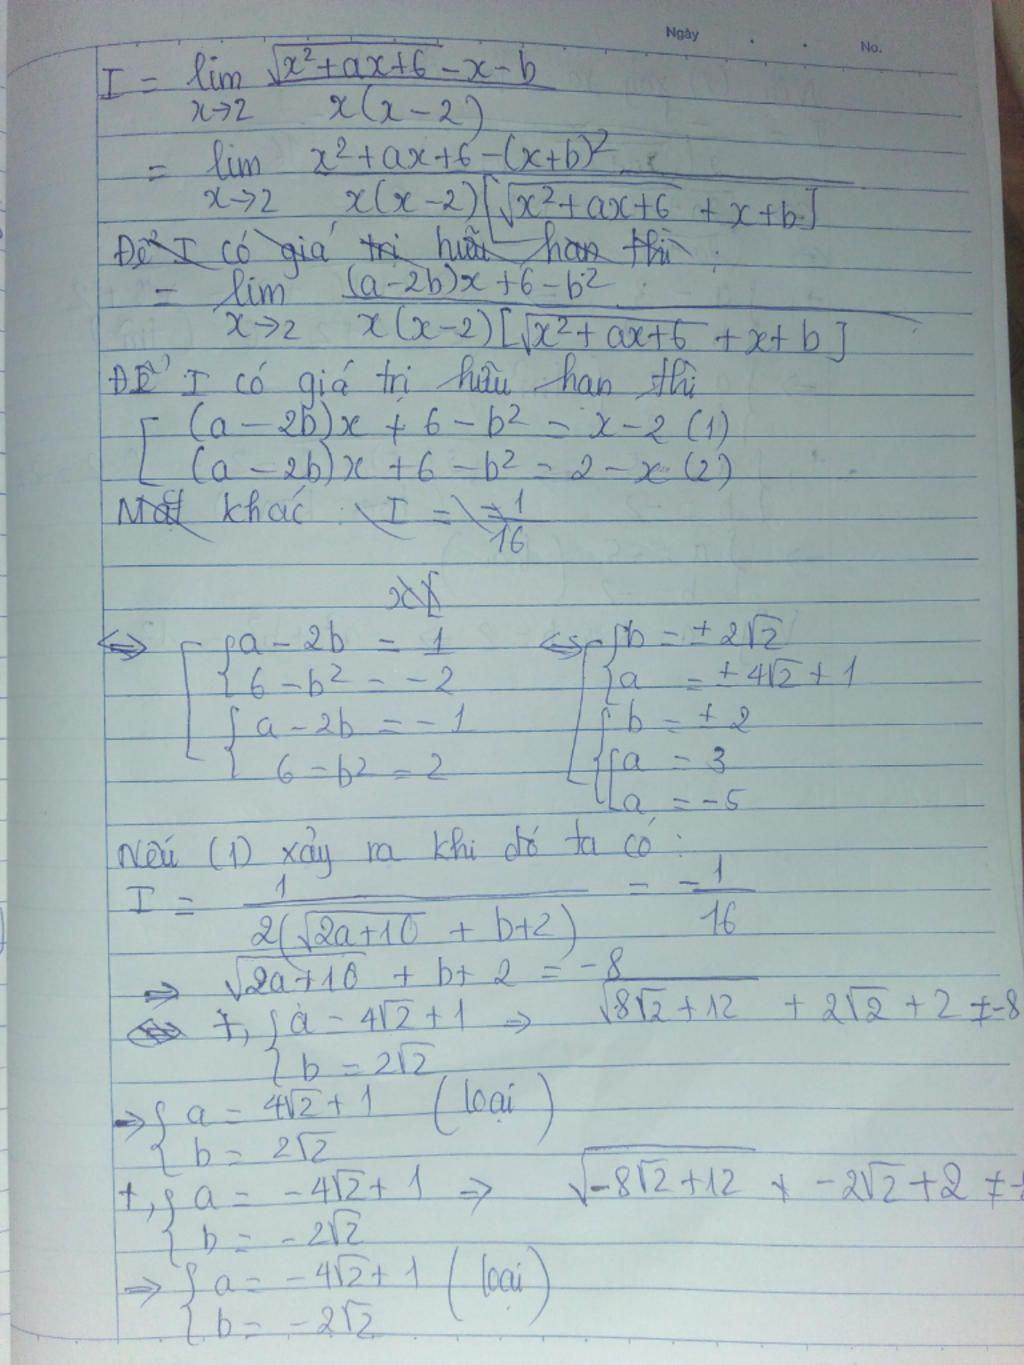 Ngày
No.
I = lim √(x²+ax+6) -x-b
x→2 x(x-2)
= lim x²+ax+6-(x+b)²
x→2 x(x-2)[√(x²+ax+6) + x+b]
Để I có giá trị hữu hạn thì :
= lim (a-2b)x+6-b²
x→2 x(x-2)[√(x²+ax+6) + x+b]
Để I có giá trị hữu hạn thì
[ (a-2b)x + 6-b² = x-2 (1)
(a-2b)x +6-b² = 2-x (2)
Mặt khác : I = -1/16
x [
⇔ [ { a-2b = 1 ⇔ [ { b = ±2√2
{ 6-b² = -2 { a = ±4√2+1
{ a-2b = -1 { b = ±2
{ 6-b² = 2 { [ a = 3
a = -5
Nếu (1) xảy ra khi đó ta có :
I = 1 = -1
2(√(2a+10) + b+2) 16
⇒ √(2a+10) + b+2 = -8
⇔ +, { a = 4√2+1 ⇒ √(8√2+12) + 2√2+2 ≠ -8
{ b = 2√2
⇒ { a = 4√2+1 (loại)
{ b = 2√2
+, { a = -4√2+1 ⇒ √(-8√2+12) + -2√2+2 ≠ -
{ b = -2√2
⇒ { a = -4√2+1 (loại)
{ b = -2√2